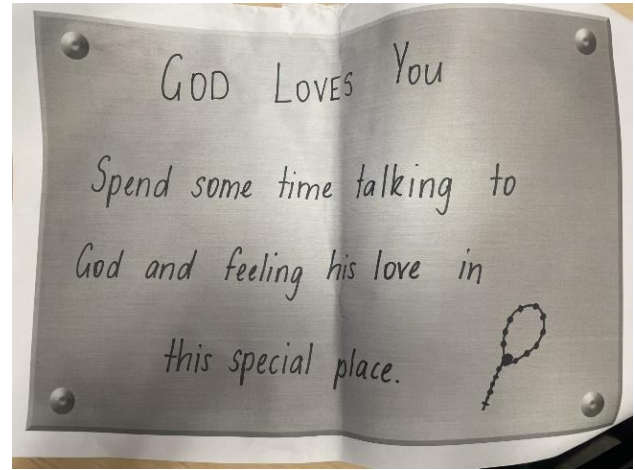 GOD LOVES YOU
Spend some time talking to
God and feeling his love in
this special place.